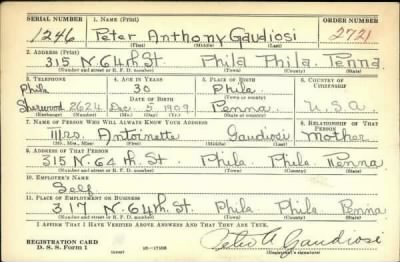 SERIAL NUMBER 1. NAME (Print) ORDER NUMBER
1246 Peter Anthony Gaudiosi 2721
(First) (Middle) (Last)
2. ADDRESS (Print)
315 N. 64th St. Phila Phila. Penna
(Number and street or R. F. D. number) (Town) (County) (State)
3. TELEPHONE 4. AGE IN YEARS 5. PLACE OF BIRTH 6. COUNTRY OF CITIZENSHIP
Phila 30 Phila.
DATE OF BIRTH (Town or county)
Sherwood 2624 Dec. 5, 1909. Penna U.S.A
(Exchange) (Number) (Mo.) (Day) (Yr.) (State or country)
7. NAME OF PERSON WHO WILL ALWAYS KNOW YOUR ADDRESS 8. RELATIONSHIP OF THAT PERSON
Mrs. Antoinette Gaudiosi Mother
(Mr., Mrs., Miss) (First) (Middle) (Last)
9. ADDRESS OF THAT PERSON
315 N. 64th St. Phila. Phila. Penna
(Number and street or R. F. D. number) (Town) (County) (State)
10. EMPLOYER'S NAME
Self
11. PLACE OF EMPLOYMENT OR BUSINESS
317 N. 64th. St. Phila Phila Penna
(Number and street or R. F. D. number) (Town) (County) (State)
I AFFIRM THAT I HAVE VERIFIED ABOVE ANSWERS AND THAT THEY ARE TRUE.
REGISTRATION CARD
D. S. S. Form 1 Peter A Gaudiosi
(Registrant's signature)